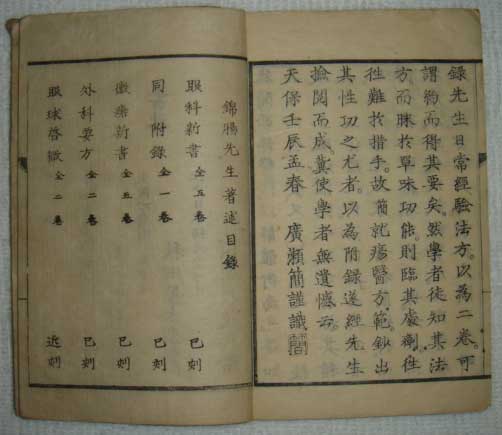 録先生日常經驗法方。以為二卷。可
謂約而得其要矣。然學者徒知其法
方而眛於單味功能。則臨其處劑徃
徃難於措手。故簡就瘍醫方範。鈔出
其性功之尤者。以為附録。遂經先生
撿閲而成。冀使學者無遺憾云。
天保壬辰孟春 廣瀬簡謹識
錦腸先生著述目録
眼科新書 全五卷 已刻
同附録 全一卷 已刻
黴瘡新書 全五卷 已刻
外科要方 全二卷 已刻
眼球啓微 全二卷 近刻